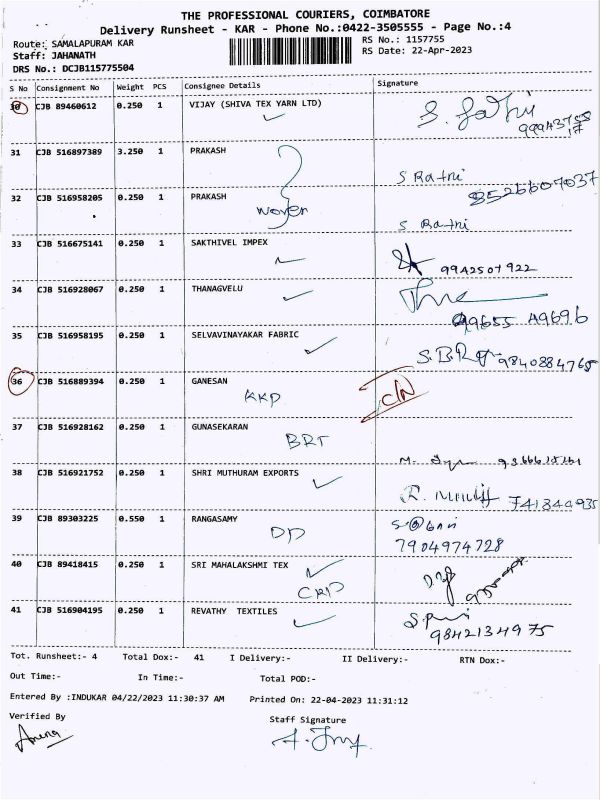 THE PROFESSIONAL COURIERS, COIMBATORE
Delivery Runsheet - KAR - Phone No.:0422-3505555 - Page No.:4
Route: SAMALAPURAM KAR
RS No.: 1157755
Staff: JAHANATH
RS Date: 22-Apr-2023
DRS No.: DCJB115775504
S No Consignment No Weight PCS Consignee Details Signature
30 CJB 89460612 0.250 1 VIJAY (SHIVA TEX YARN LTD)
31 CJB 516897389 3.250 1 PRAKASH
S Rathi
32 CJB 516958205 0.250 1 PRAKASH
woven
S Rathi
33 CJB 516675141 0.250 1 SAKTHIVEL IMPEX
9942501922
34 CJB 516928067 0.250 1 THANAGVELU
99655 49696
35 CJB 516958195 0.250 1 SELVAVINAYAKAR FABRIC
9840884765
36 CJB 516889394 0.250 1 GANESAN
KKP
C/N
37 CJB 516928162 0.250 1 GUNASEKARAN
BRT
38 CJB 516921752 0.250 1 SHRI MUTHURAM EXPORTS
39 CJB 89303225 0.550 1 RANGASAMY
DD
7904974728
40 CJB 89418415 0.250 1 SRI MAHALAKSHMI TEX
41 CJB 516904195 0.250 1 REVATHY TEXTILES
9842134975
Tot. Runsheet:- 4 Total Dox:- 41 I Delivery:- II Delivery:- RTN Dox:-
Out Time:- In Time:- Total POD:-
Entered By :INDUKAR 04/22/2023 11:30:37 AM Printed On: 22-04-2023 11:31:12
Verified By
Staff Signature